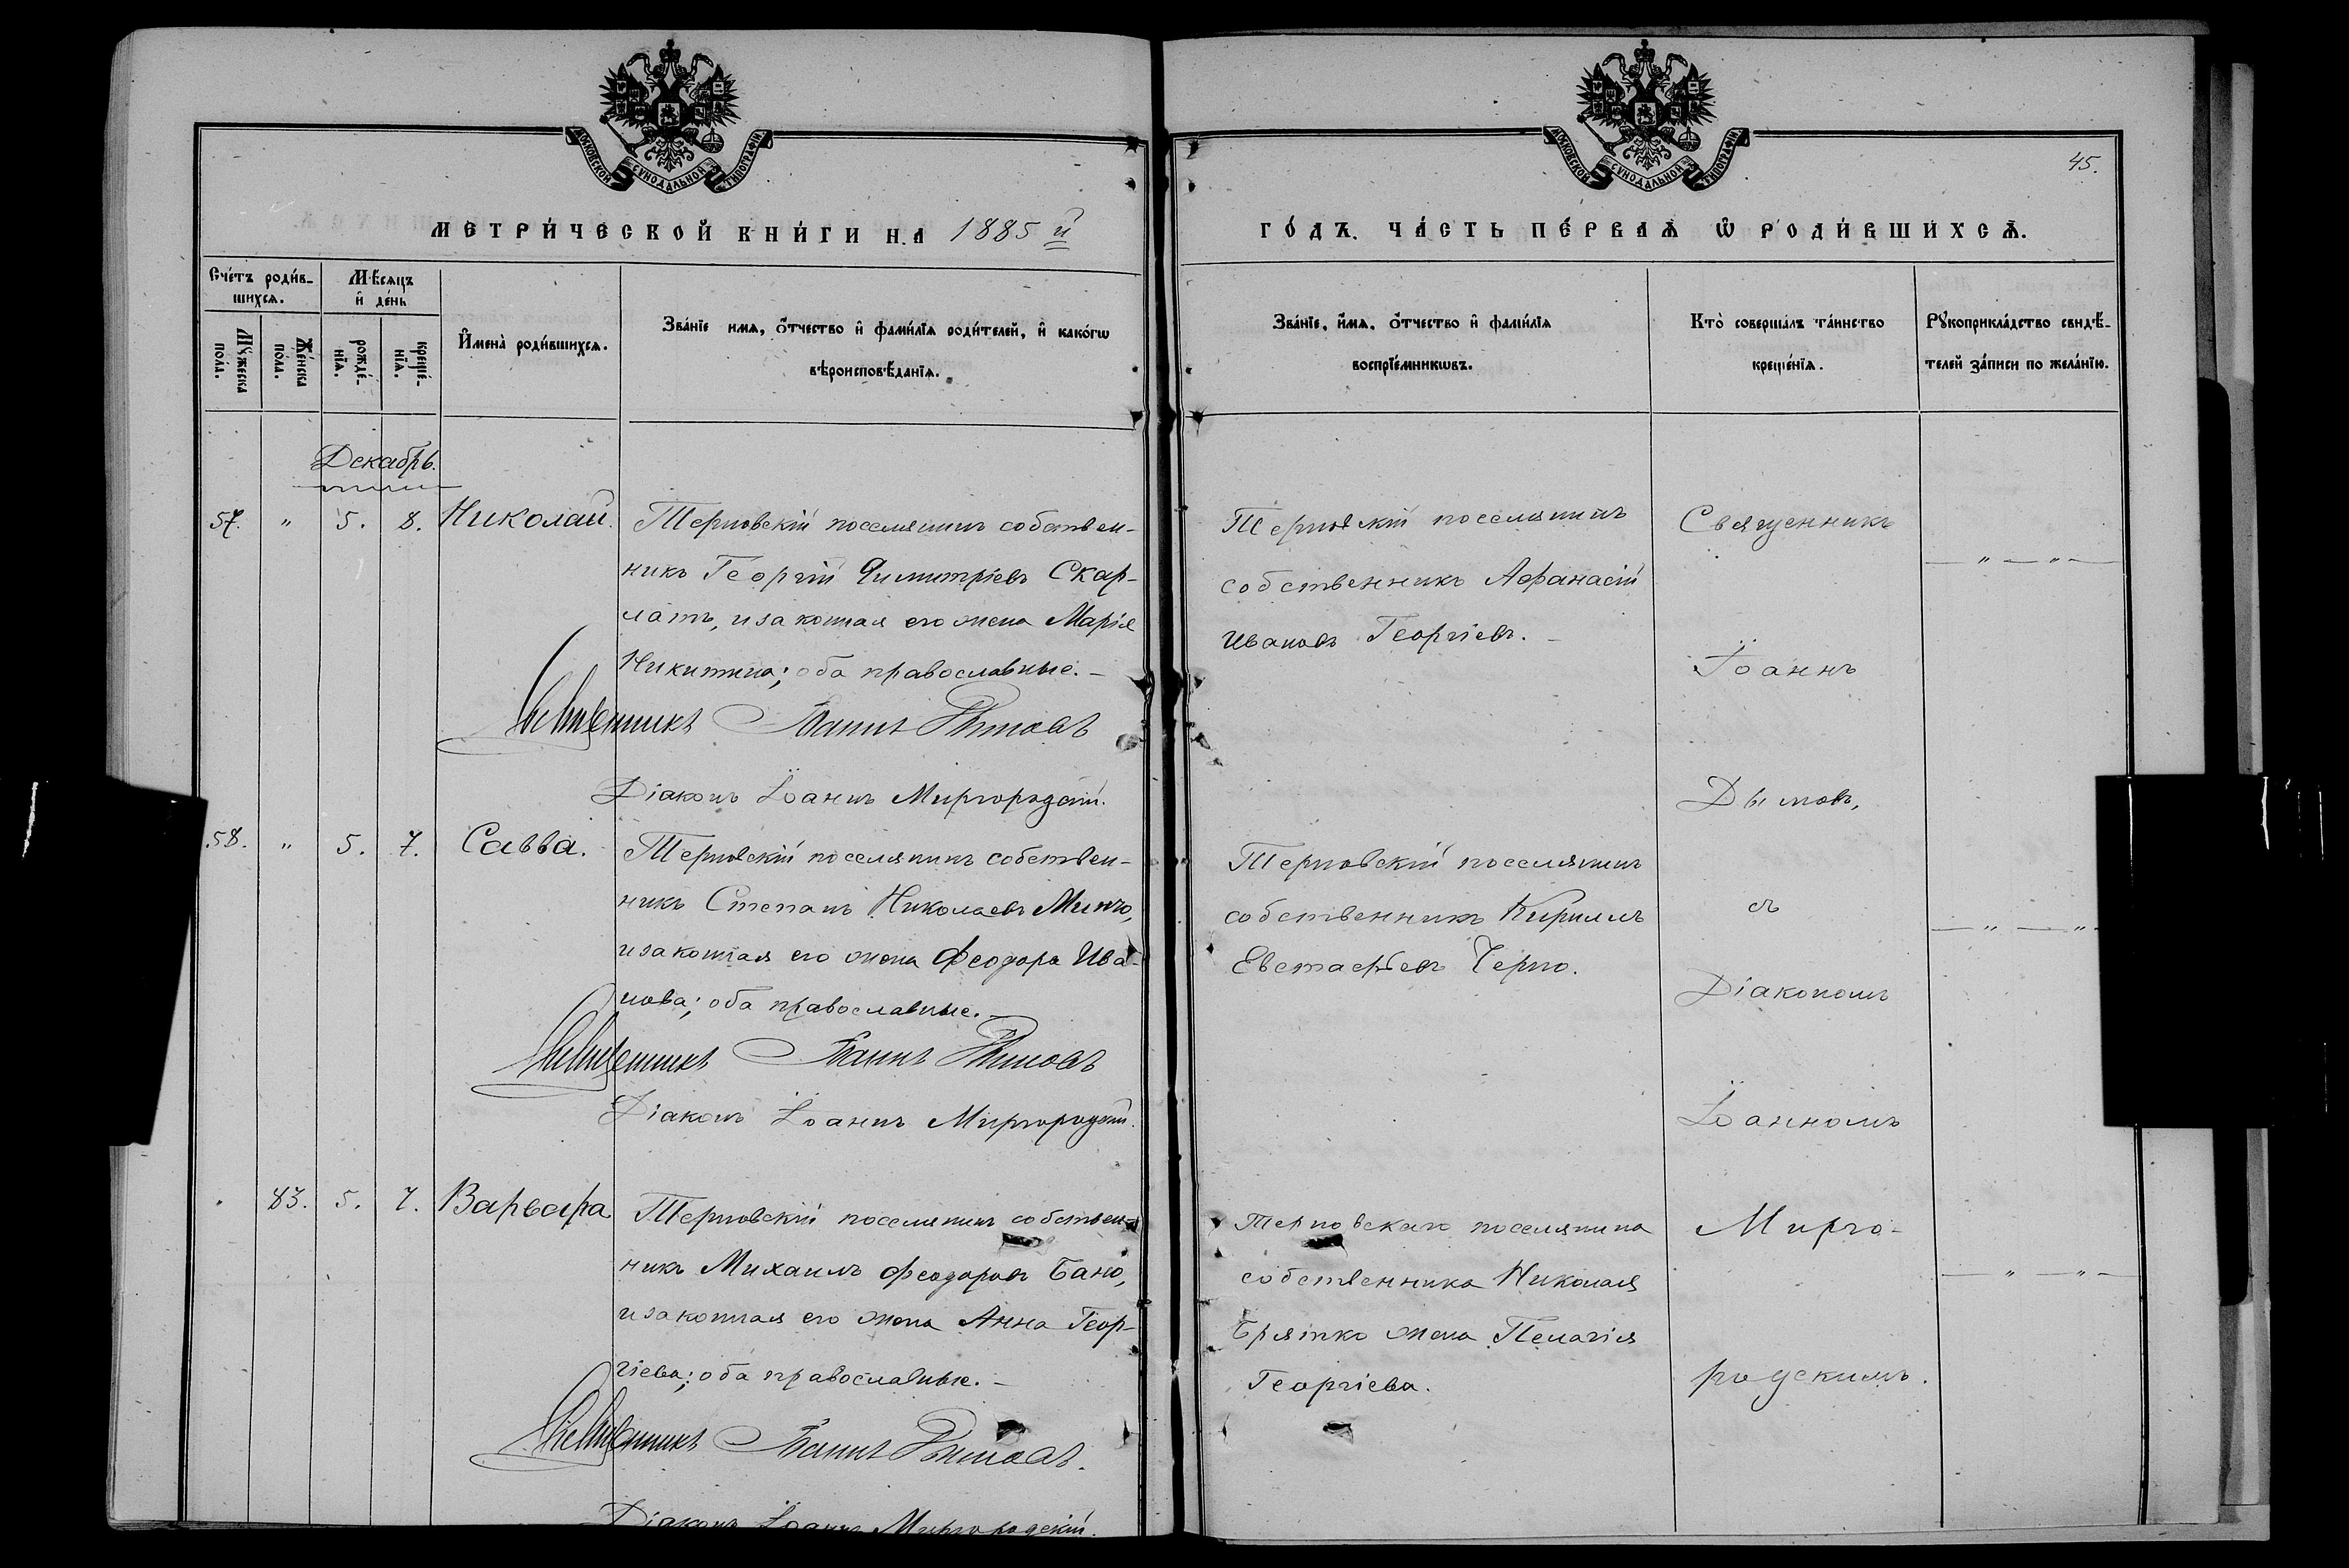 МОСКОВСКОЙ СѴНОДАЛЬНОЙ ТИПОГРАФІИ
МЕТРИ́ЧЕСКОЙ КНИ́ГИ НА 1885 й
Сче́тъ роди́в-
шихсѧ.
Мѣсяцъ
и҆ де́нь
Мꙋжеска
по́ла.
Же́нска
по́ла.
рожде́-
нїѧ.
креще́-
нїѧ.
И҆мена̀ роди́вшихсѧ.
Зва́нїе имѧ, ѻ҆́тчество и҆ фами́лїѧ роди́телей, и҆ како́гѡ
вѣроисповѣ́данїѧ.
Декабрь.
57. " 5. 8. Николай.
Терновскій поселянинъ собствен-
никъ Георгій Димитріевъ Скар-
латъ, и законная его жена Марія
Никитина; оба православные. –
Священникъ Іоаннъ Дымовъ
Діаконъ Іоаннъ Миргородскій.
58. " 5. 7. Савва.
Терновскій поселянинъ собствен-
никъ Степанъ Николаевъ Минчо,
и законная его жена Феодора Ива-
нова; оба православные. –
Священникъ Іоаннъ Дымовъ
Діаконъ Іоаннъ Миргородскій.
83. 5. 7. Варвара
Терновскій поселянинъ собствен-
никъ Михаилъ Феодоровъ Бано,
и законная его жена Анна Геор-
гіева; оба православные. –
Священникъ Іоаннъ Дымовъ.
Діаконъ Іоаннъ Миргородскій.
МОСКОВСКОЙ СѴНОДАЛЬНОЙ ТИПОГРАФІИ
45.
ГО́ДЪ. ЧА́СТЬ ПЕ́РВАѦ Ѽ РОДИ́ВШИХСѦ.
Зва́нїе, и҆́мѧ, ѻ҆́тчество и҆ фами́лїѧ
воспрїе́мникѡвъ.
Кто̀ соверша́лъ та́инство
креще́нїѧ.
Рꙋкоприкла́дство свидѣ́-
телей за́писи по жела́нїю.
Терновскій поселянинъ
собственникъ Афанасій
Ивановъ Георгіевъ. –
Терновскій поселянинъ
собственникъ Кириллъ
Евстафьевъ Черно.
Терновскаго поселянина
собственника Николая
Брятко жена Пелагія
Георгіева.
Священникъ
Іоаннъ
Дымовъ,
съ
Діакономъ
Іоанномъ
Мирго-
родскимъ.
— " — " —
— " — " —
— " — " —